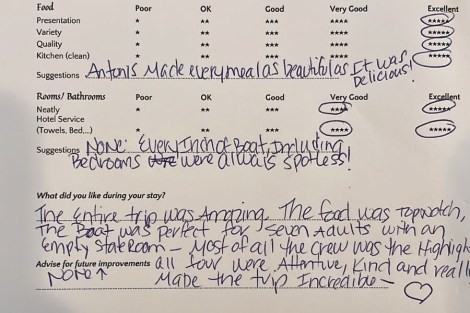 Food Poor OK Good Very Good Excellent
Presentation * ** *** **** *****
Variety * ** *** **** *****
Quality * ** *** **** *****
Kitchen (clean) * ** *** **** *****
Suggestions Antonis Made every meal as beautiful as It was
Delicious!
Rooms/ Bathrooms Poor OK Good Very Good Excellent
Neatly * ** *** **** *****
Hotel Service
(Towels, Bed...) * ** *** **** *****
Suggestions None. Every Inch of Boat, Including
Bedrooms were always spotless!
What did you like during your stay?
The Entire trip was Amazing. The food was topnotch,
The Boat was perfect for seven Adults with an
Empty StateRoom – Most of all the crew was the Highligh
Advise for future improvements all four were Attentive, Kind and reall
None ↑ Made the trip Incredible – ♡